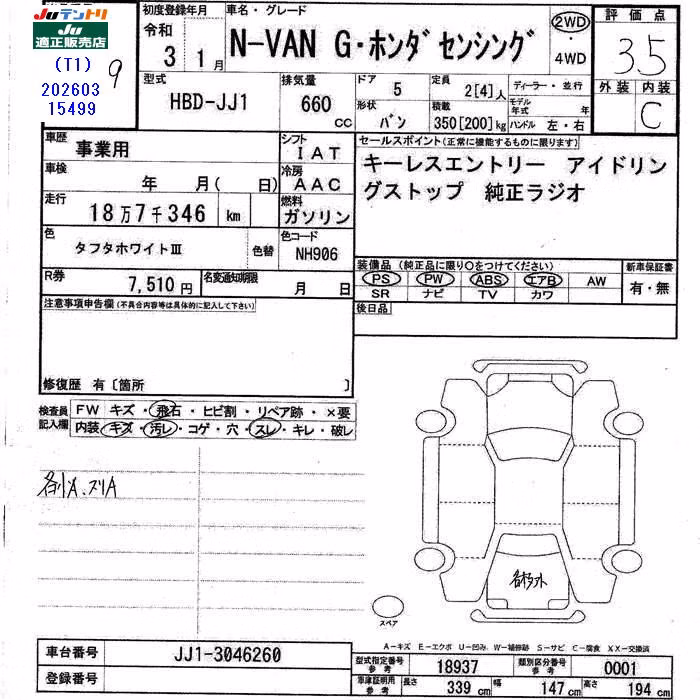 Juテントリ
Ju
適正販売店
(T1)
202603
15499
9
初度登録年月
令和
3 1月
車名・グレード
N-VAN G・ホンダセンシング
2WD
・
4WD
評価点
3.5
外装 内装
C
型式
HBD-JJ1
排気量
660
CC
ドア 5
形状
バン
定員 2[4]人
積載
350[200]kg
ディーラー・並行
モデル年式 年
ハンドル 左・右
車歴
事業用
シフト
IAT
セールスポイント(正常に機能するものに限ります)
キーレスエントリー アイドリン
グストップ 純正ラジオ
車検
年 月( 日)
冷房
AAC
走行
18万7千346 km
燃料
ガソリン
色
タフタホワイトⅢ
色替
色コード
NH906
装備品 (純正品に限り○をつけてください)
PS PW ABS エアB AW
SR ナビ TV カワ
新車保証書
有・無
R券
7,510円
名変通知期限
月 日
後日品
注意事項申告欄(不具合内容等は具体的に記入して下さい)
修復歴 有〔箇所 〕
検査員
記入欄
FW キズ・飛石・ヒビ割・リペア跡・×要
内装・キズ・汚レ・コゲ・穴・スレ・キレ・破レ
各キリA、スリA
スペア
A-キズ E-エクボ U-凹み W-補修跡 S-サビ C-腐食 XX-交換済
車台番号
JJ1-3046260
登録番号
型式指定番号
参考
18937
類別区分番号
参考
0001
車庫証明用
参考
長さ 339 cm 幅 147 cm 高さ 194 cm